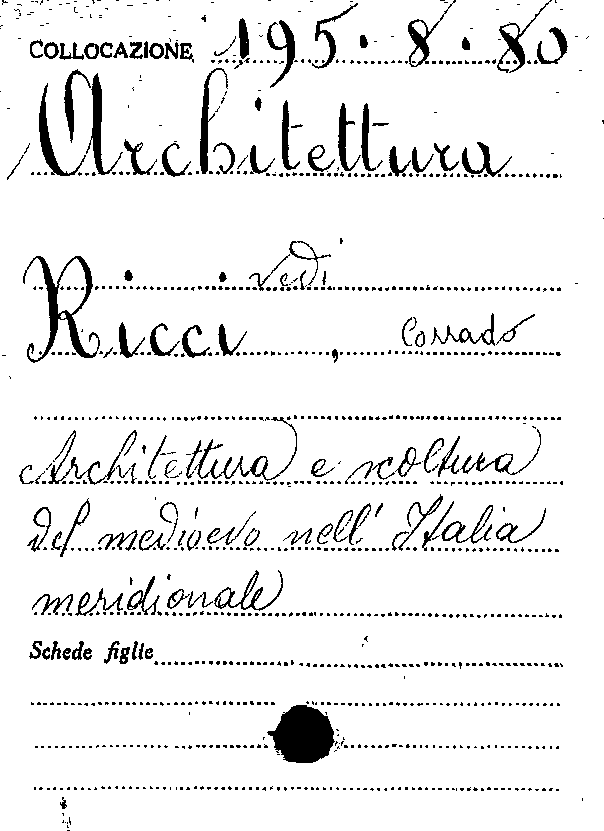 COLLOCAZIONE 195.8.80
Architettura
vedi
Ricci, Corrado
Architettura e scoltura
del medioevo nell' Italia
meridionale
Schede figlie